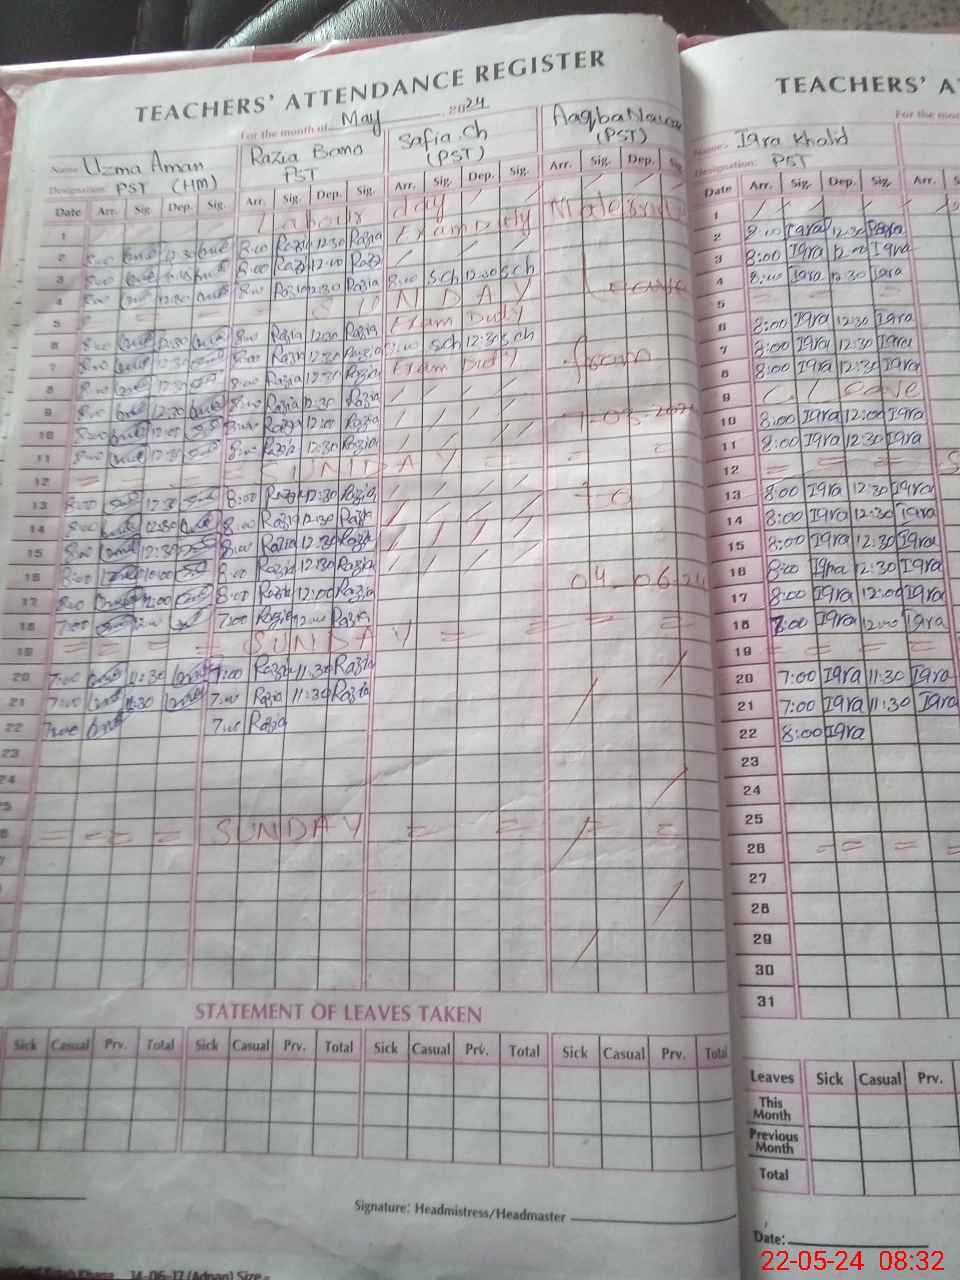 TEACHERS' ATTENDANCE REGISTER
For the month of May 2024
Name Uzma Aman Razia Bano Safia Ch Aaqba Nawaz
Designation: PST (HM) PST (PST) (PST)
Date Arr. Sig. Dep. Sig. Arr. Sig. Dep. Sig. Arr. Sig. Dep. Sig. Arr. Sig. Dep. Sig.
1 Labour day Maternity
2 8:00 12:30 8:00 Razia 12:30 Razia Exam Duty
3 8:00 8:00 Razia 12:00 Razia
4 8:00 12:30 8:00 Razia 12:30 Razia 8:00 S.ch 12:30 S.ch
5 = = = SUNDAY Leave
6 8:00 12:30 8:00 Razia 12:30 Razia Exam Duty
7 8:00 12:30 8:00 Razia 12:30 Razia 8:00 S.ch 12:30 S.ch
8 8:00 12:30 8:00 Razia 12:30 Razia Exam Duty from
9 8:00 12:30 8:00 Razia 12:30 Razia
10 8:00 12:00 8:00 Razia 12:00 Razia
11 8:00 12:30 8:00 Razia 12:30 Razia
12 = = = = SUNDAY = = =
13 8:00 12:30 8:00 Razia 12:30 Razia To
14 8:00 12:30 8:00 Razia 12:30 Razia
15 8:00 12:30 8:00 Razia 12:30 Razia
16 8:00 10:00 8:00 Razia 12:30 Razia 04-06-24
17 8:00 12:00 8:00 Razia 12:00 Razia
18 7:00 12:00 7:00 Razia 12:00 Razia
19 = = = = SUNDAY = = = =
20 7:00 11:30 7:00 Razia 11:30 Razia
21 7:00 11:30 7:00 Razia 11:30 Razia
22 7:00 7:00 Razia
23
24
= = = SUNDAY = = = =
STATEMENT OF LEAVES TAKEN
Sick Casual Prv. Total Sick Casual Prv. Total Sick Casual Prv. Total Sick Casual Prv. Total
Signature: Headmistress/Headmaster
14-06-17 (Adnan) Size -
TEACHERS'
For the
Name: Iqra Khalid
Designation: PST
Date Arr. Sig. Dep. Sig. Arr.
1
2 8:00 Iqra 12:30 Iqra
3 8:00 Iqra 12:00 Iqra
4 8:00 Iqra 12:30 Iqra
5 = = = =
6 8:00 Iqra 12:30 Iqra
7 8:00 Iqra 12:30 Iqra
8 8:00 Iqra 12:30 Iqra
9 C/Leave
10 8:00 Iqra 12:00 Iqra
11 8:00 Iqra 12:30 Iqra
12 = = = = S
13 8:00 Iqra 12:30 Iqra
14 8:00 Iqra 12:30 Iqra
15 8:00 Iqra 12:30 Iqra
16 8:00 Iqra 12:30 Iqra
17 8:00 Iqra 12:00 Iqra
18 7:00 Iqra 12:00 Iqra
19 = = = =
20 7:00 Iqra 11:30 Iqra
21 7:00 Iqra 11:30 Iqra
22 8:00 Iqra
23
24
25
26 = = = =
27
28
29
30
31
Leaves Sick Casual Prv.
This Month
Previous Month
Total
Date:
22-05-24 08:32